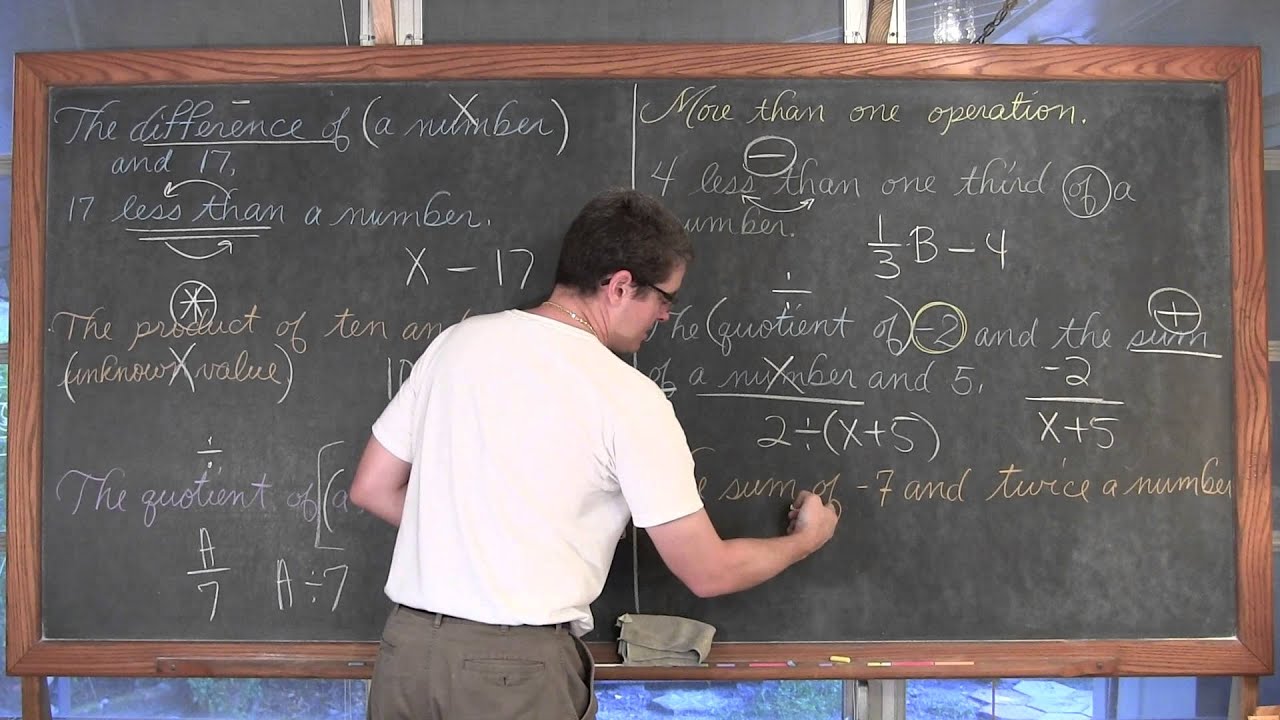 The difference of (a number)
and 17,
17 less than a number.
X − 17
The product of ten
(unknown value)
10
÷
The quotient of [(a
A/7 A÷7
More than one operation.
4 less than one third of a
number.
1/3·B − 4
÷
The (quotient of) -2 and the sum
of a number and 5.
-2/(x+5)
2÷(x+5)
sum of -7 and twice a number